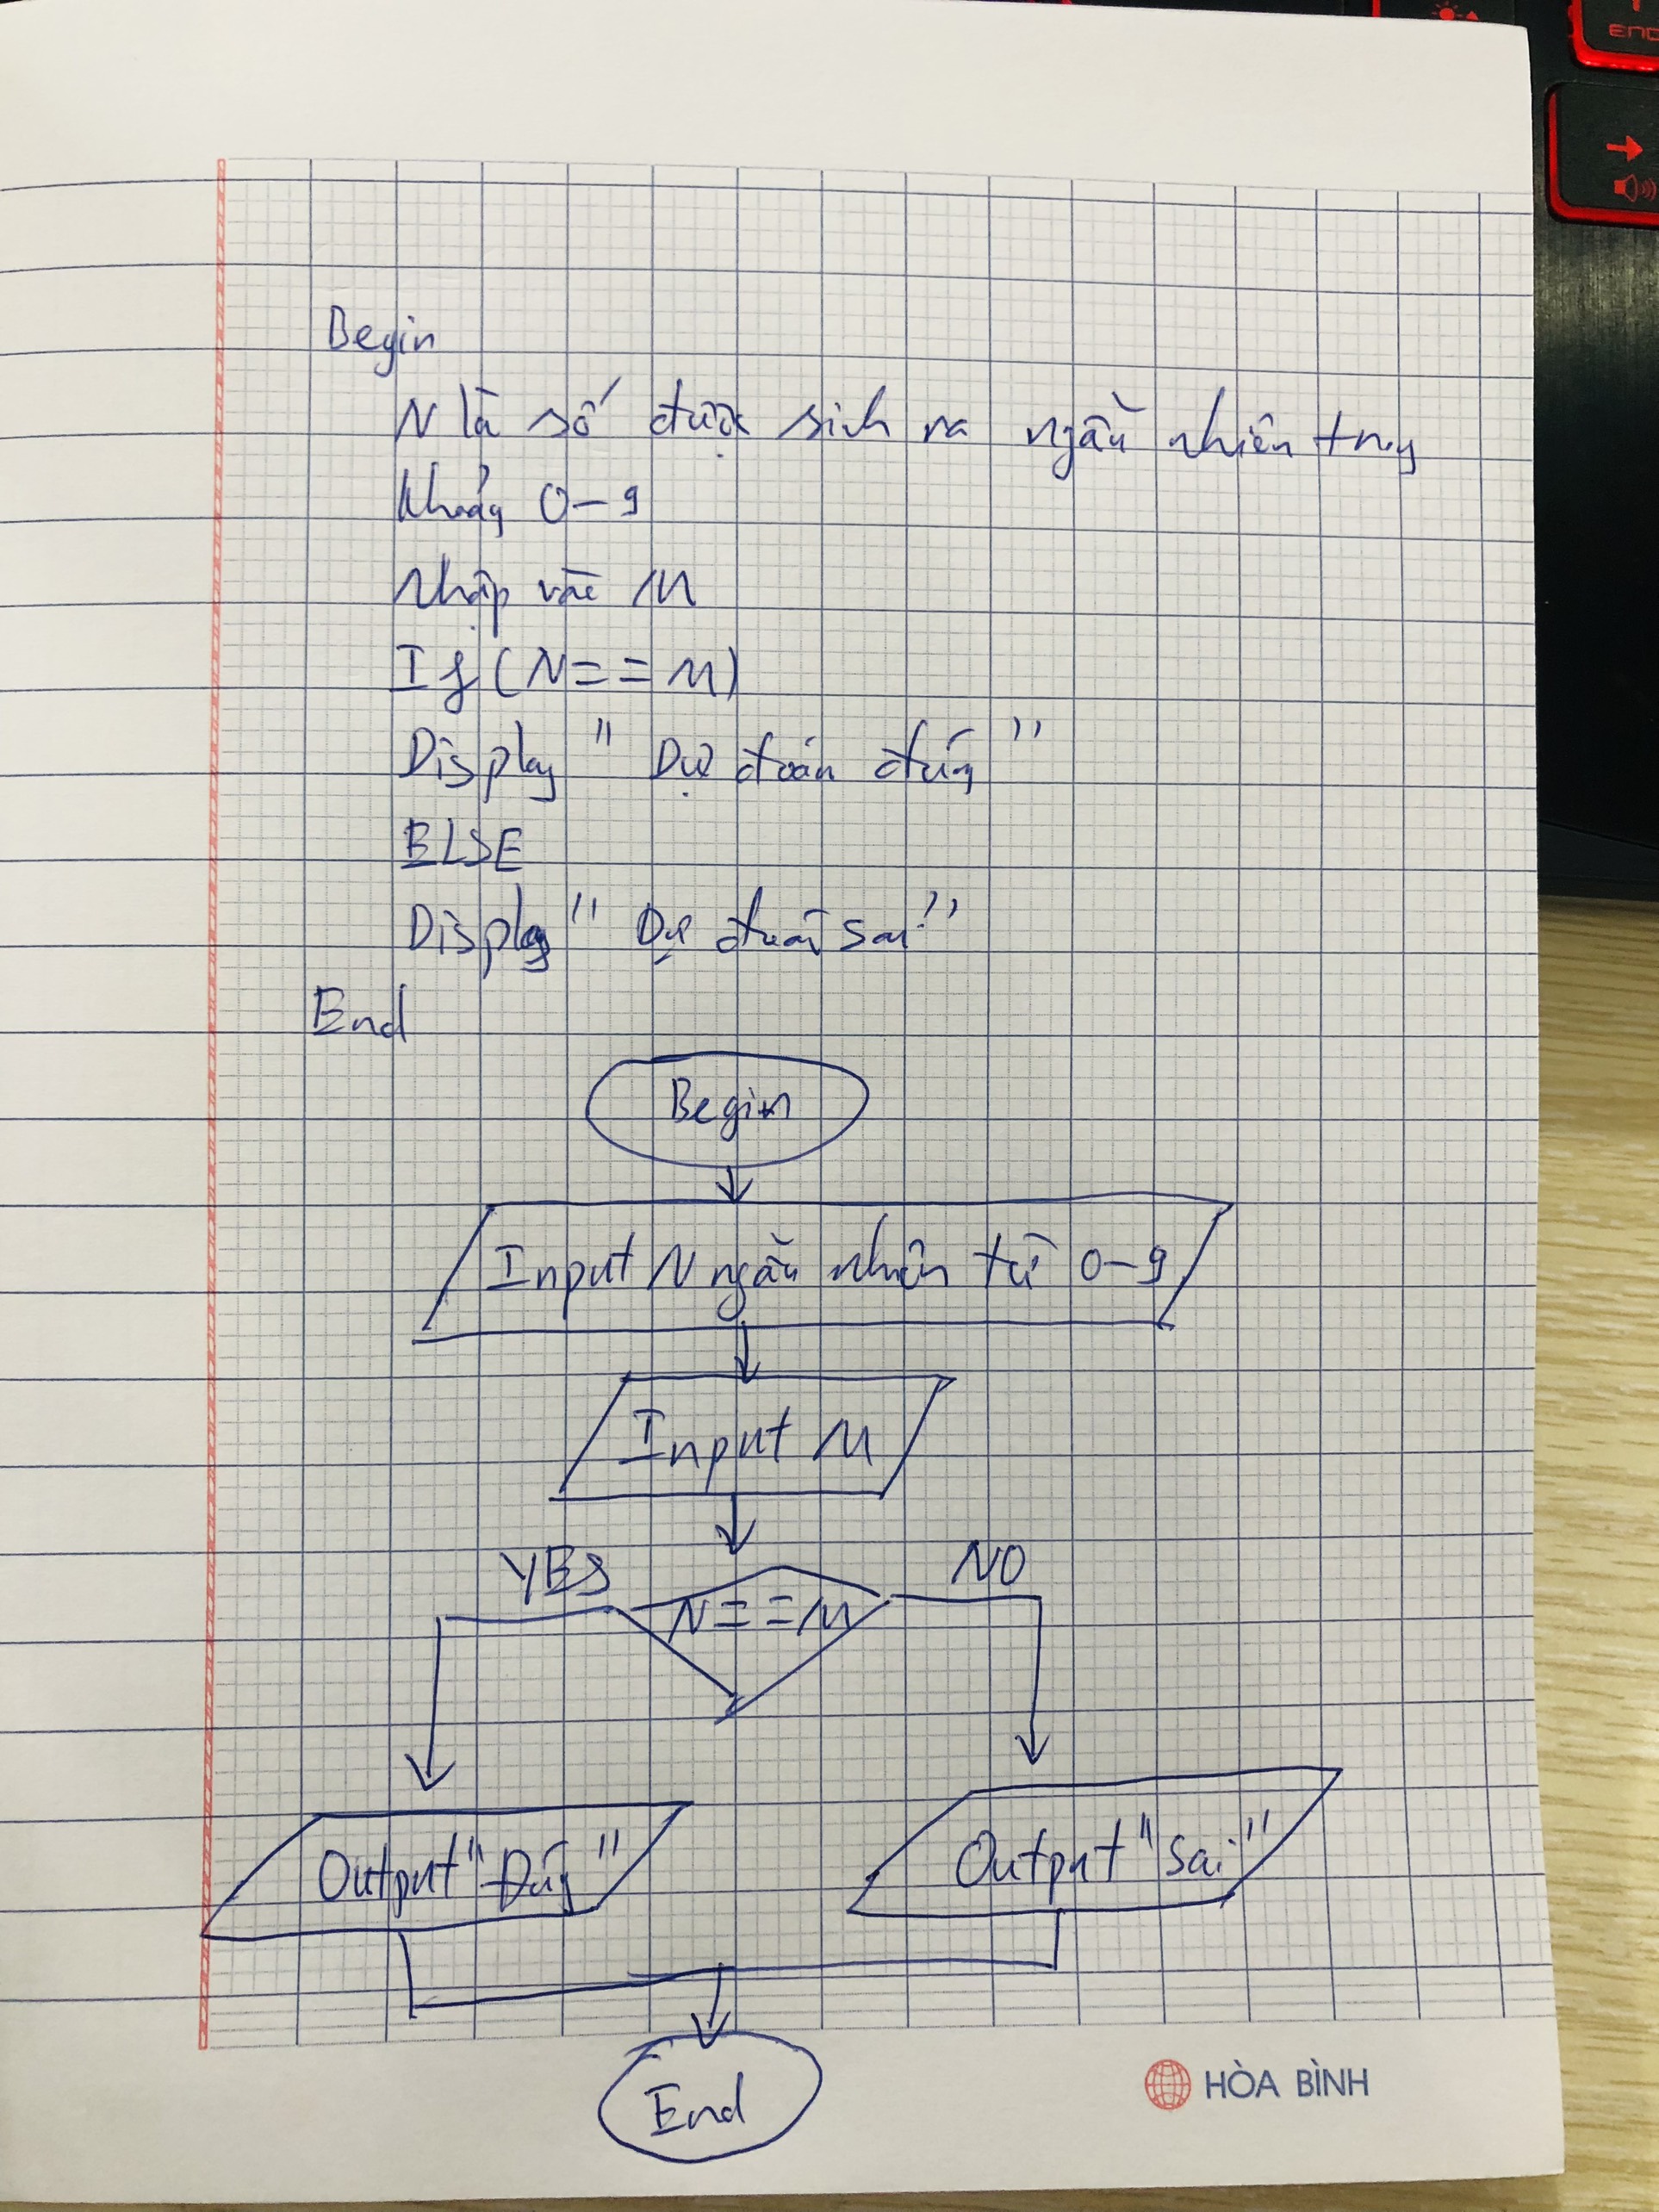 Begin
N là số được sinh ra ngẫu nhiên trog
Khoảg 0-9
Nhập vào M
If (N==M)
Display " Dự đoán đúg "
ELSE
Display " Dự đoán sai "
End
Begin
Input N ngẫu nhiên từ 0-9
Input M
YES
NO
N==M
Output "Đúg"
Output "Sai"
End
HÒA BÌNH
END